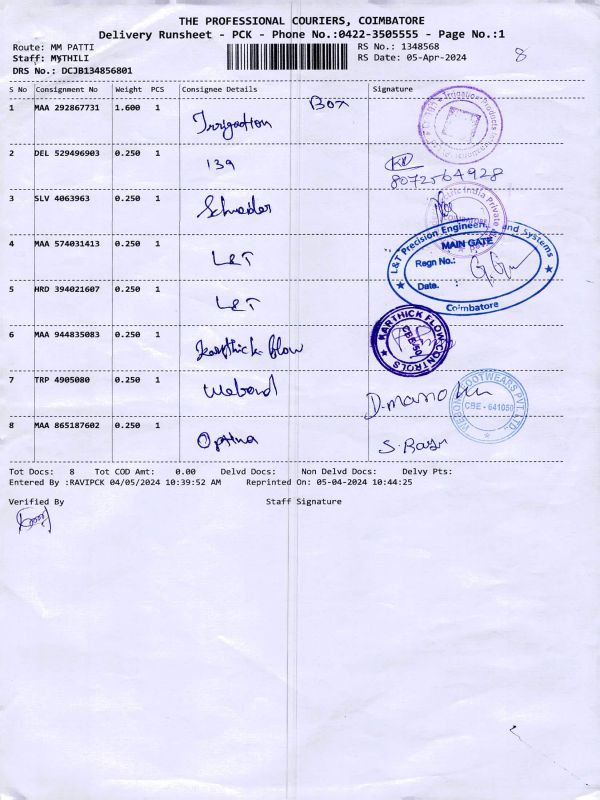 THE PROFESSIONAL COURIERS, COIMBATORE
Delivery Runsheet - PCK - Phone No.:0422-3505555 - Page No.:1
Route: MM PATTI
RS No.: 1348568
Staff: MYTHILI
RS Date: 05-Apr-2024
8
DRS No.: DCJB134856801
S No Consignment No Weight PCS Consignee Details Signature
1 MAA 292867731 1.600 1 Irrigation Box
2 DEL 529496903 0.250 1 139
8072564928
3 SLV 4063963 0.250 1 Schneider
4 MAA 574031413 0.250 1 L&T
L&T Precision Engineering and Systems
MAIN GATE
Regn No.:
Date. :
Coimbatore
5 HRD 394021607 0.250 1 L&T
6 MAA 944835083 0.250 1 Karthick flow
KARTHICK FLOW CONTROLS
CBE-50
7 TRP 4905080 0.250 1 Webond
D. mano
FOOTWEARS PVT LTD
CBE - 641050
8 MAA 865187602 0.250 1 Optina
Tot Docs: 8 Tot COD Amt: 0.00 Delvd Docs: Non Delvd Docs: Delvy Pts:
Entered By :RAVIPCK 04/05/2024 10:39:52 AM Reprinted On: 05-04-2024 10:44:25
Verified By Staff Signature